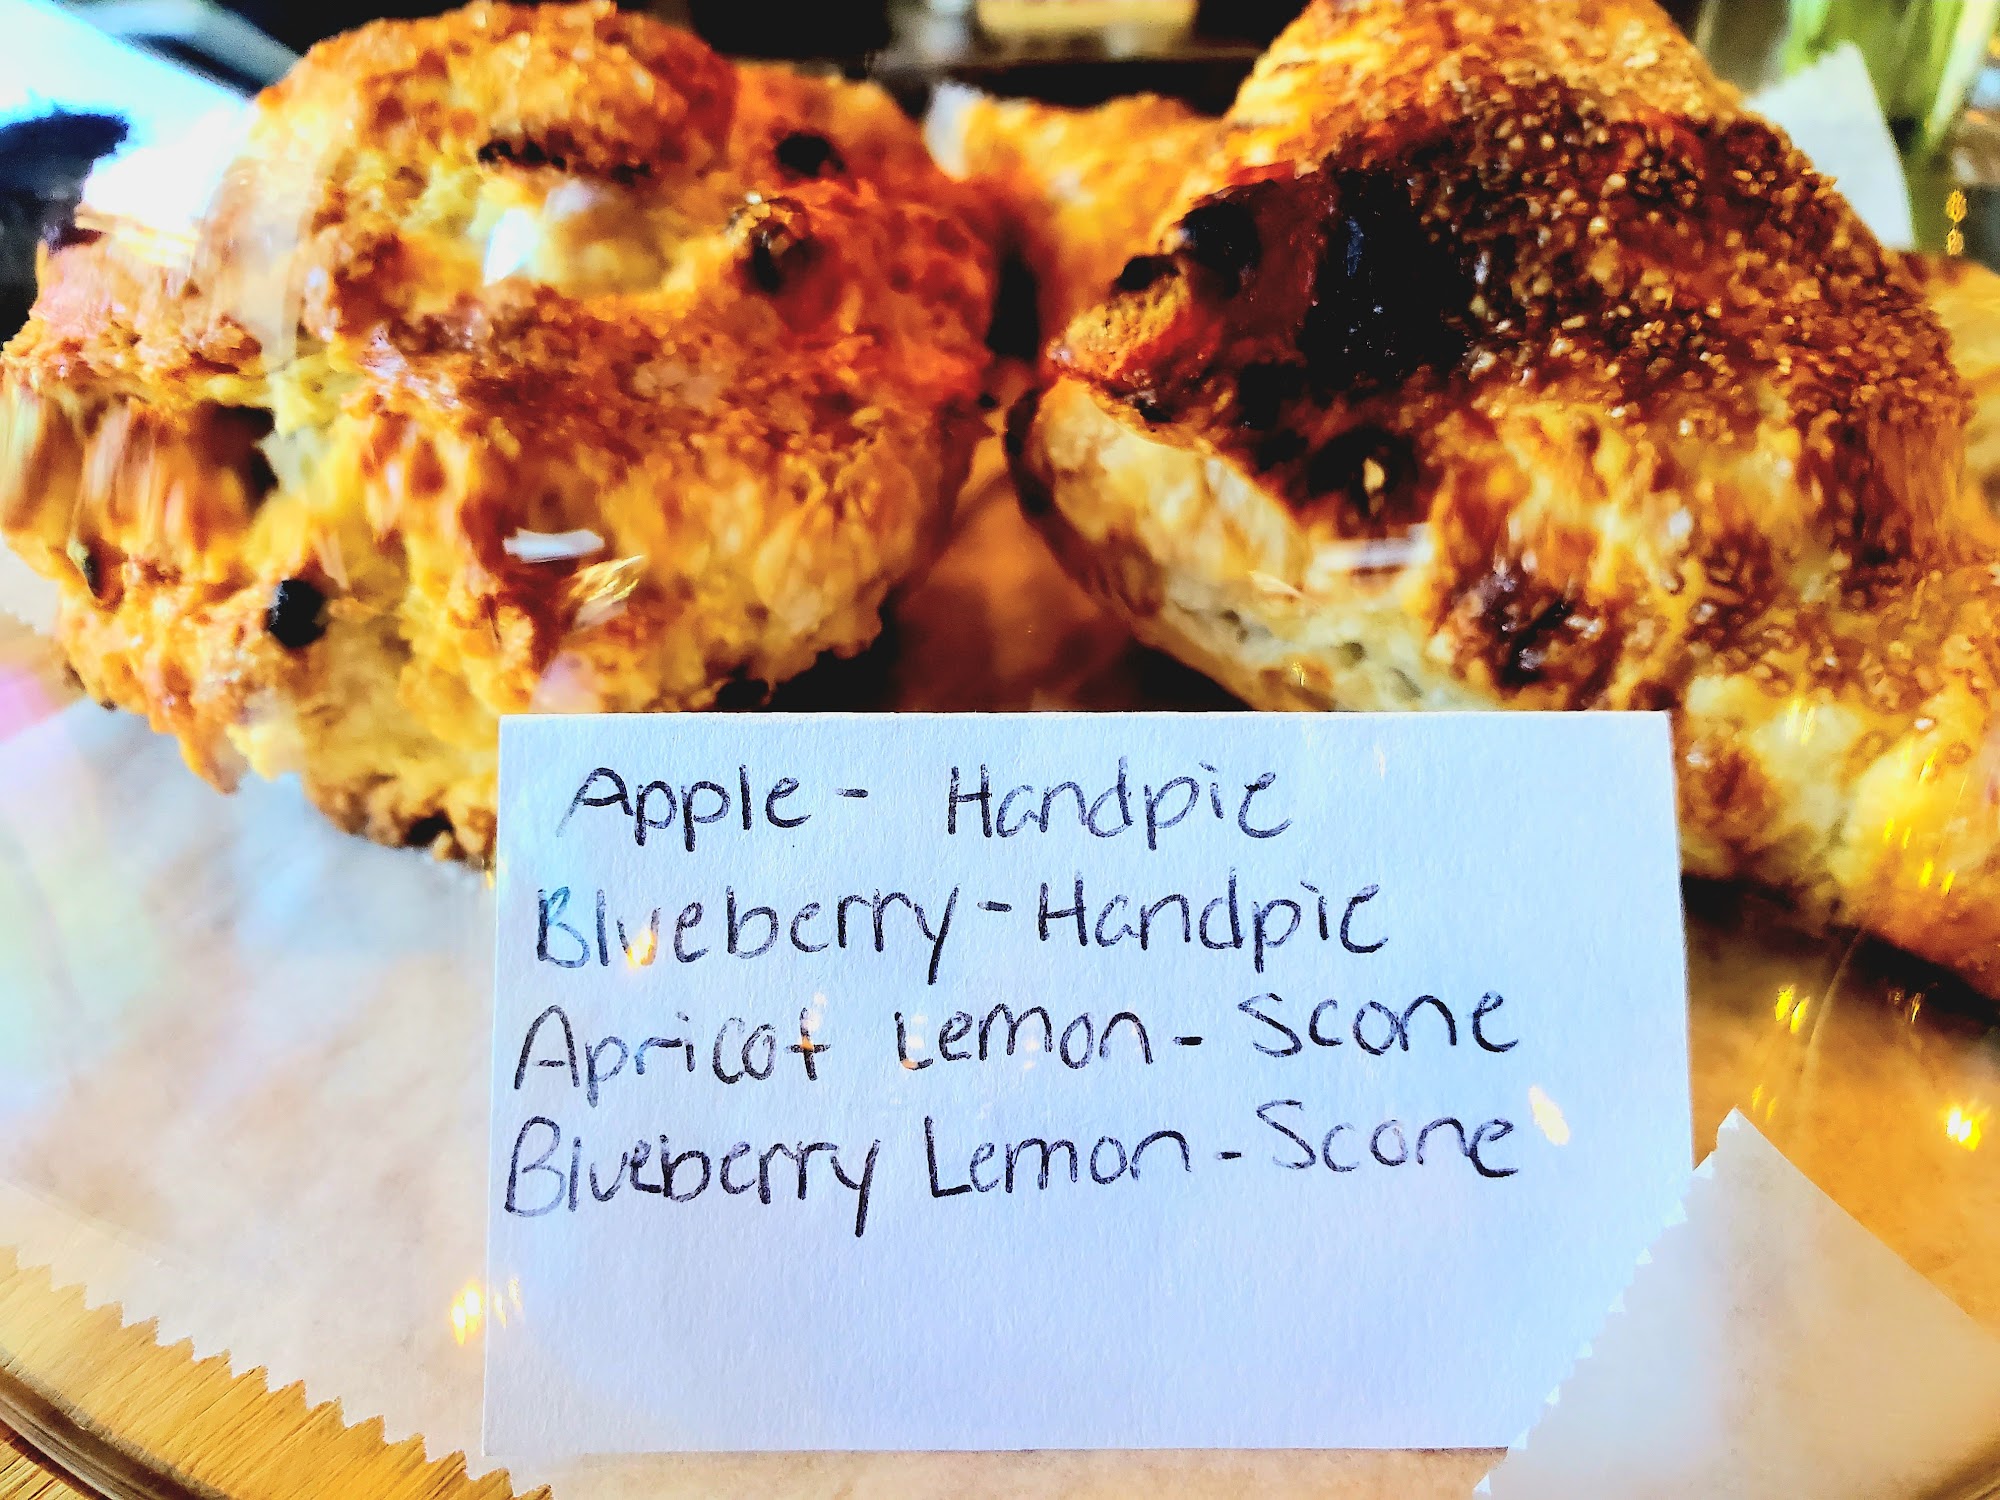 Apple - Handpie
Blueberry - Handpie
Apricot Lemon - Scone
Blueberry Lemon - Scone